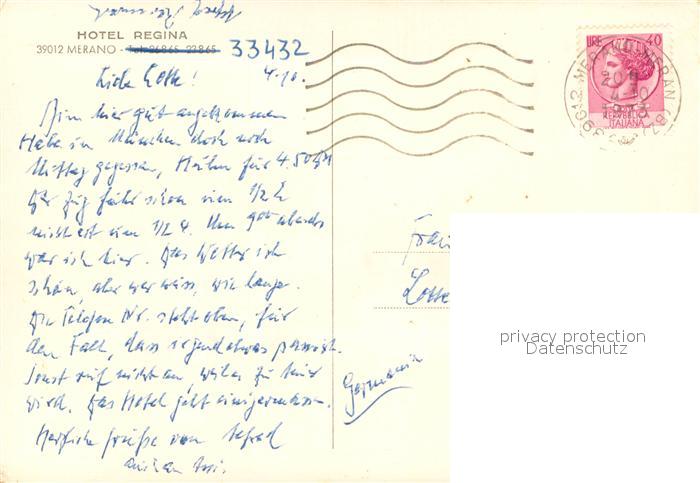 HOTEL REGINA
39012 MERANO - Tel. 26865 23865 33432
Liebe Lotte! 4.10.
Bin hier gut angekommen
Habe in München doch noch
Mittag gegessen, Huhn für 4.50
Der Zug fuhr schon um 1/2 2
nicht erst um 1/2 4. Um abends
war ich hier. Das Wetter ist
schön, aber wer weiss, wie lange.
Die Telefon Nr. steht oben, für
den Fall, dass irgendetwas passiert.
Sonst ruf nicht an, weil es zu teuer
wird. Das Hotel geht einigermassen.
Herzliche Grüße von
Germania
Lotte
LIRE 40
REPUBBLICA
ITALIANA
39012 MERANO MERAN (BZ)
privacy protection
Datenschutz